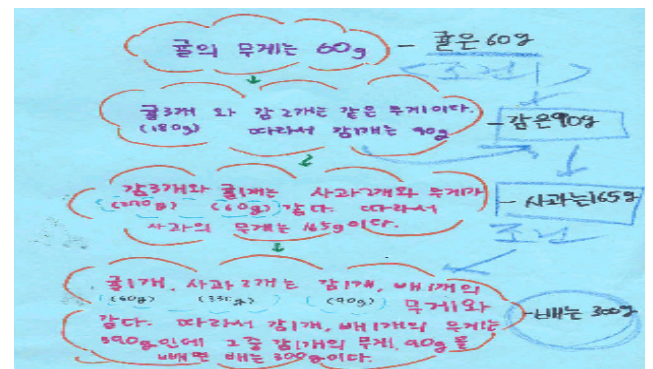 귤의 무게는 60g - 귤은 60g
<조건>
귤3개 와 감2개는 같은 무게이다.
(180g) 따라서 감1개는 90g - 감은90g
감3개와 귤1개는 사과2개와 무게가
(270g) (60g) 같다. 따라서
사과의 무게는 165g이다. - 사과는165g
조건
귤1개, 사과 2개는 감1개, 배1개의
(60g) (330g) (90g) 무게와
같다. 따라서 감1개, 배1개의 무게는
390g인데 그중 감1개의 무게, 90g를
빼면 배는 300g이다. - 배는 300g